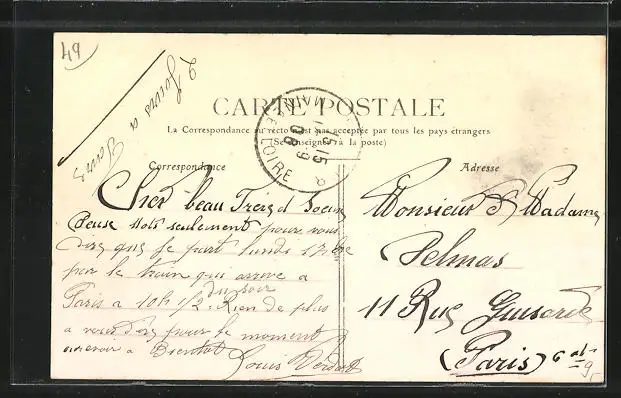 49
2 Jours a
Tours
CARTE POSTALE
La Correspondance au recto n'est pas acceptée par tous les pays étrangers
(Se renseigner à la poste)
Correspondance
Adresse
LOIRE
15
Cher beau Frere et Soeur
Deux Mots seulement pour vous
dire que je part lundi 17
par le train qui arrive a
Paris a 10h 1/2 du soir. Rien de plus
a vous dire pour le moment
aurevoir a Bientot
Louis
Monsieur & Madame
Delmas
11 Rue
(Paris) 6